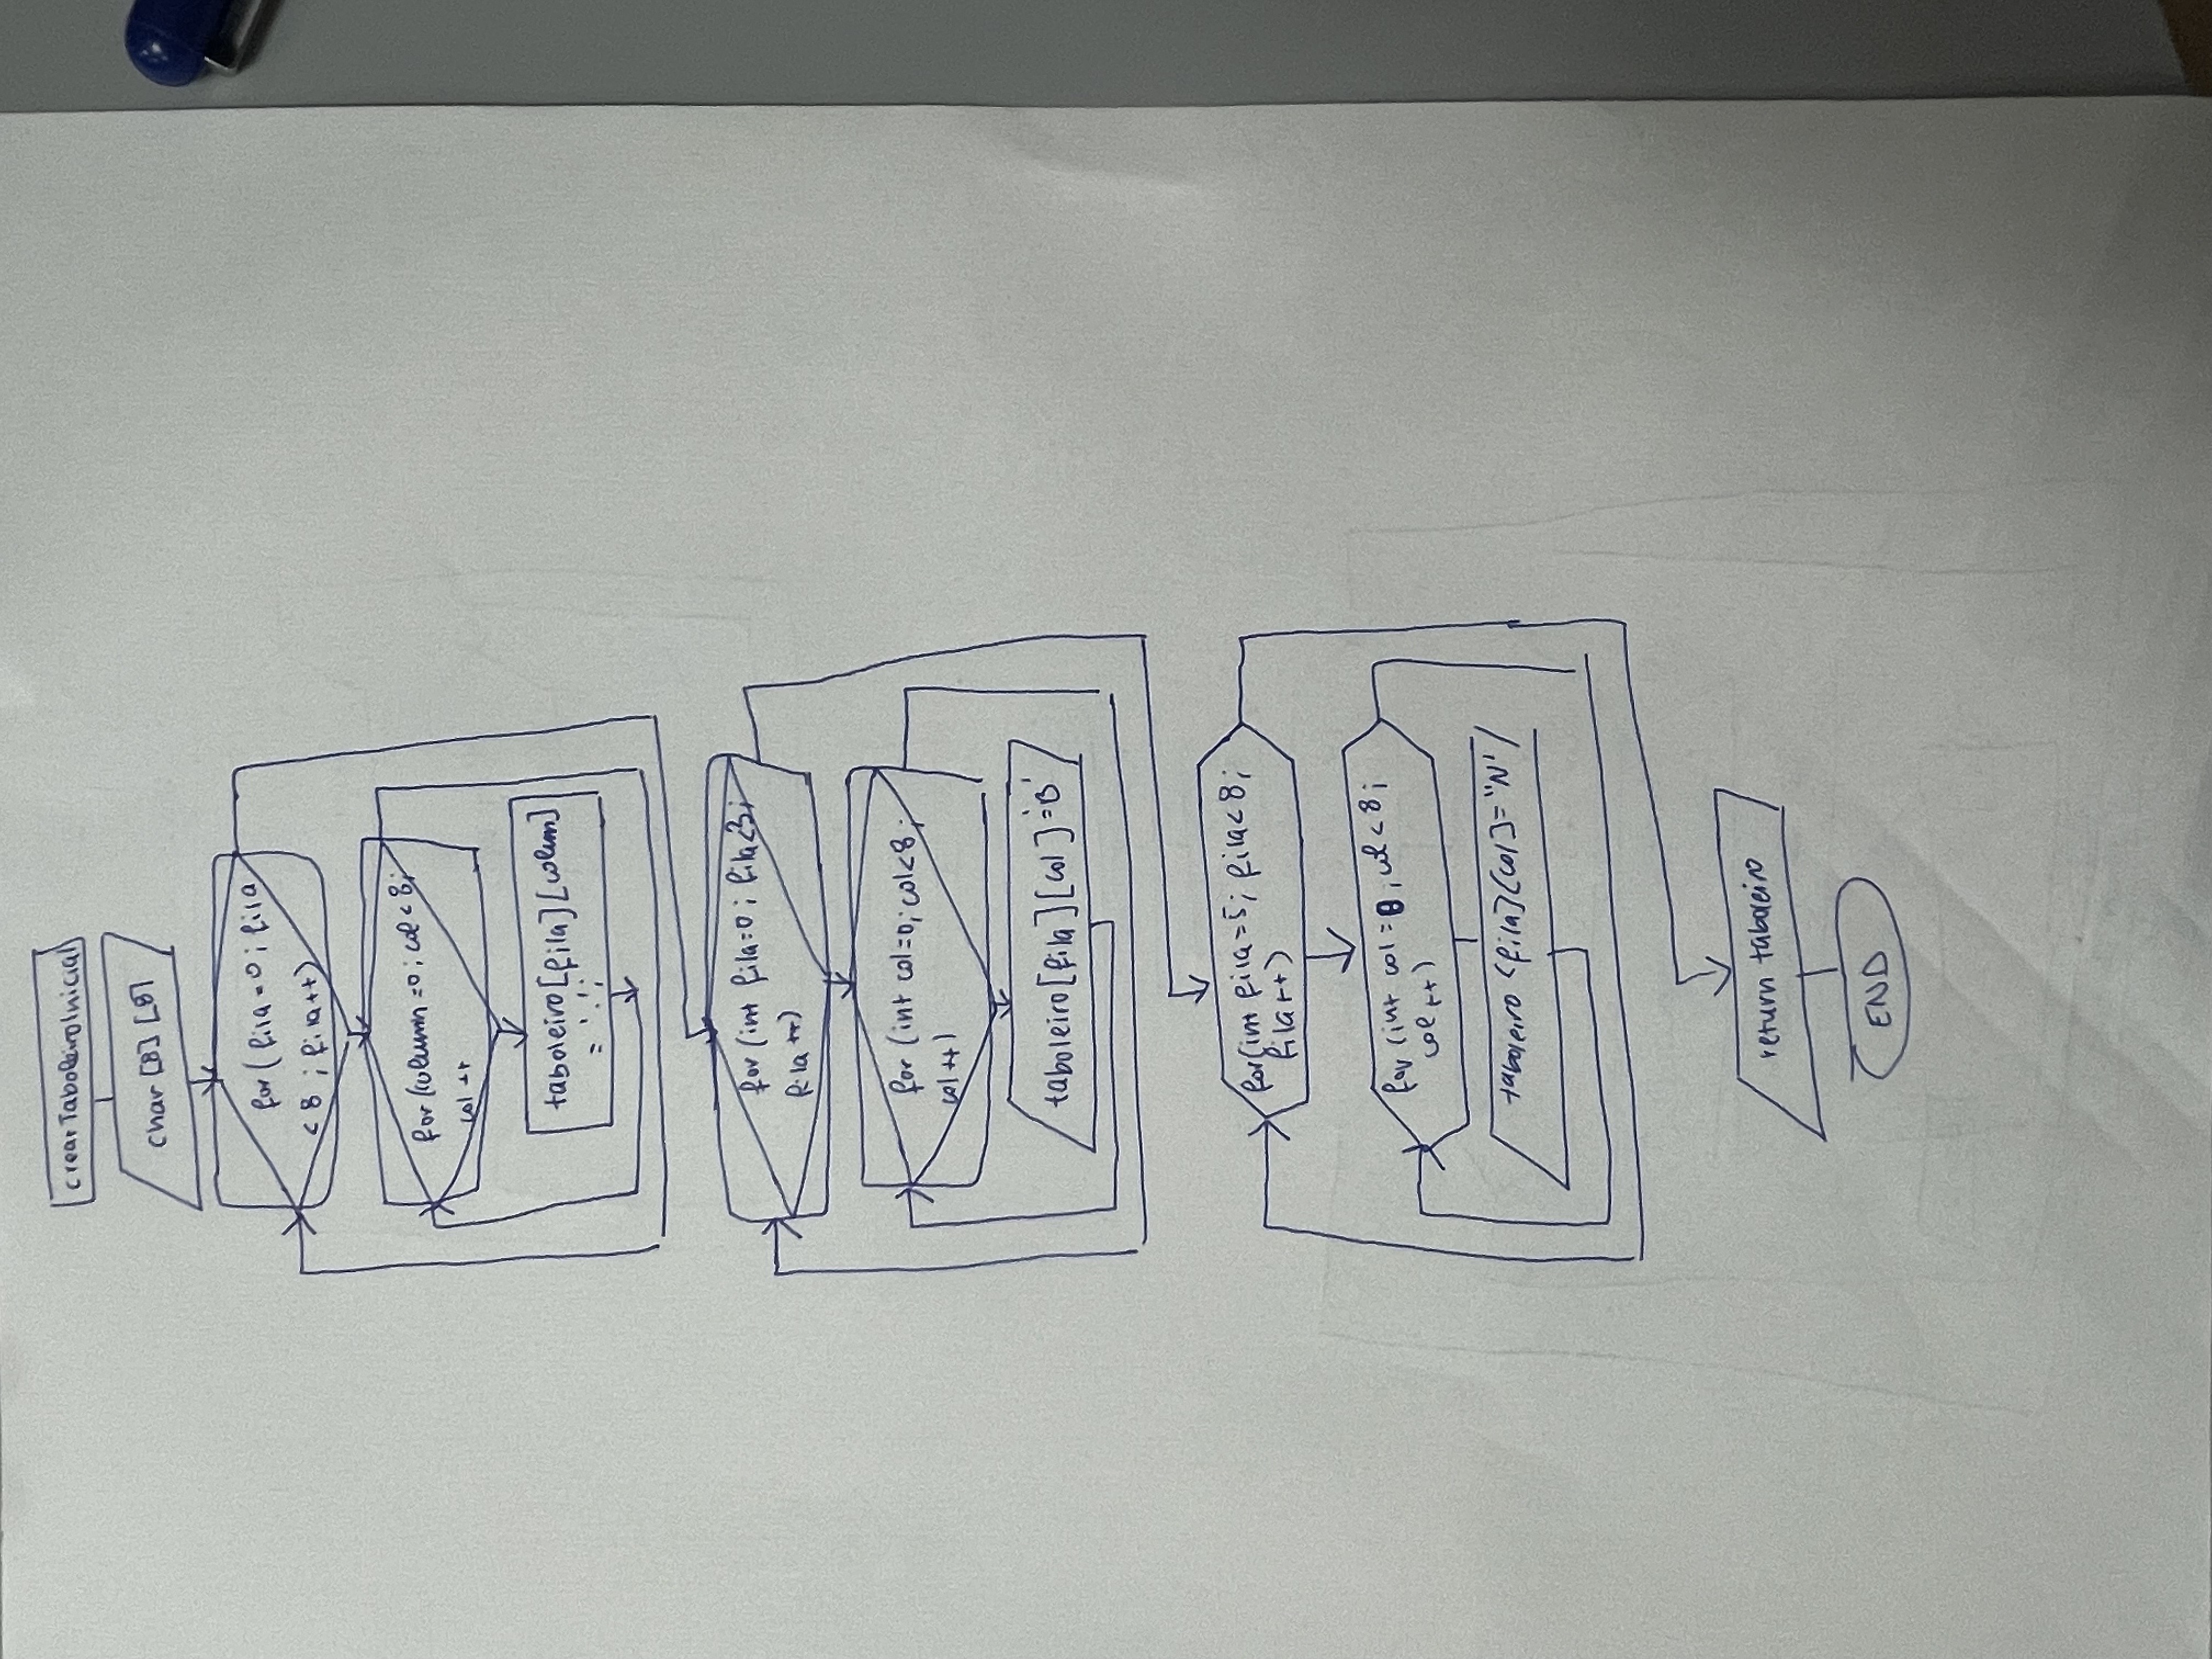 crearTaboleiroInicial
char [8] [8]
for ( fila = 0 ; fila
< 8 ; fila ++)
for (column = 0 ; col < 8;
col ++
taboleiro [fila] [colum]
= '.';
for (int fila=0 ; fila<3;
fila ++)
for (int col=0; col<8;
col ++)
taboleiro [fila] [col] = 'B'
for(int fila=5; fila<8;
fila++)
for (int col = 0 ; col < 8;
col ++)
taboleiro <fila] (col] = "N'
return taboleiro
END